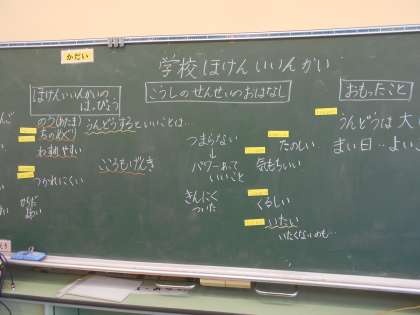 かだい
学校ほけんいいんかい
ほけんいいんかいの
はっぴょう
のう(あたま)
ちのめぐり
つかれにくい
からだ
うんどうするといいことは…
こころもげんき
こうしのせんせいのおはなし
つまらない
↓
パワーあって
いいこと
きんにく
ついた
たのしい
気もちいい
くるしい
いたい
いたくないのも…
おもったこと
うんどうは大
まい日‥よい